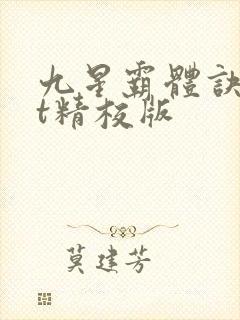 九星霸體訣
t精校版
莫建芳